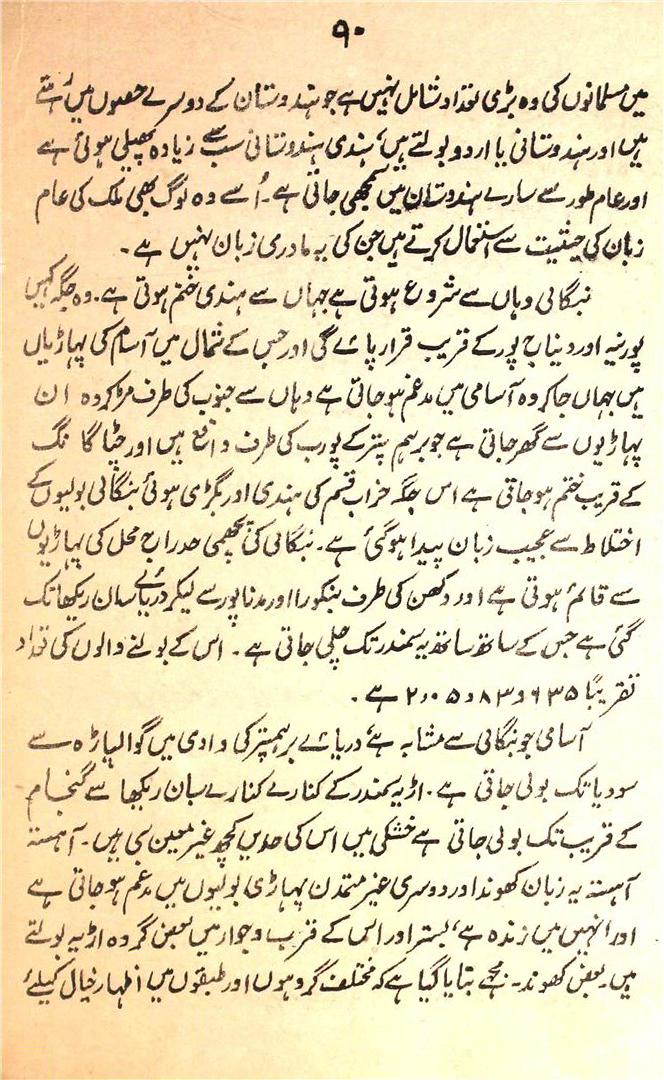 ۹۰
میں مسلمانوں کی وہ بڑی تعداد شامل نہیں ہے جو ہندوستان کے دوسرے حصوں میں رہتے
ہیں اور ہندوستانی یا اردو بولتے ہیں، ہندی ہندوستانی سب سے زیادہ پھیلی ہوئی ہے
اور عام طور سے سارے ہندوستان میں سمجھی جاتی ہے۔ اُسے وہ لوگ بھی ملک کی عام
زبان کی حیثیت سے استعمال کرتے ہیں جن کی یہ مادری زبان نہیں ہے۔
بنگالی وہاں سے شروع ہوتی ہے جہاں سے ہندی ختم ہوتی ہے۔ وہ جگہ کہیں
پورنیہ اور دیناج پور کے قریب قرار پائے گی اور جس کے شمال میں آسام کی پہاڑیاں
ہیں جہاں جا کر وہ آسامی میں مدغم ہو جاتی ہے وہاں سے جنوب کی طرف مڑ کر وہ ان
پہاڑیوں سے گھر جاتی ہے جو برہم پتر کے پورب کی طرف واقع ہیں اور چٹا گانگ
کے قریب ختم ہو جاتی ہے اس جگہ خراب قسم کی ہندی اور بگڑی ہوئی بنگالی بولیوں کے
اختلاط سے عجیب زبان پیدا ہو گئی ہے۔ بنگالی کی پچھمی حد راج محل کی پہاڑیوں
سے قائم ہوتی ہے اور دکھن کی طرف بنکورا اور مدنا پور سے لیکر دریائے سبان ریکھا تک
گئی ہے جس کے ساتھ ساتھ یہ سمندر تک چلی جاتی ہے۔ اس کے بولنے والوں کی تعداد
تقریباً ۲۰۵۰۸۳۶۳۵ ہے۔
آسامی جو بنگالی سے مشابہ ہے دریائے برہمپتر کی وادی میں گوالپاڑہ سے
سودیا تک بولی جاتی ہے۔ اڑیہ سمندر کے کنارے کنارے سبان ریکھا سے گنجام
کے قریب تک بولی جاتی ہے خشکی میں اس کی حدیں کچھ غیر معین سی ہیں۔ آہستہ
آہستہ یہ زبان کھوند اور دوسری غیر متمدن پہاڑی بولیوں میں مدغم ہو جاتی ہے
اور انہیں میں زندہ ہے، بستر اور اس کے قرب و جوار میں بعض گروہ اڑیہ بولتے
ہیں۔ بعض کھوند۔ مجھے بتایا گیا ہے کہ مختلف گروہوں اور طبقوں میں اظہار خیال کیلئے